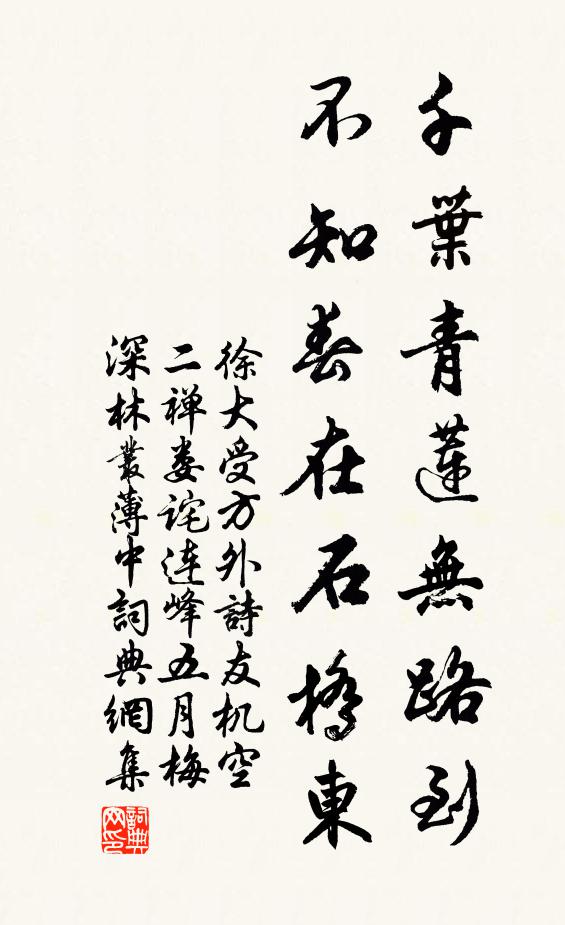 千葉青蓮無路到
不知春在石橋東
徐大受方外詩友机空
二禅娄诧连峰五月梅
深林叢薄中詞典網集
詞典网印